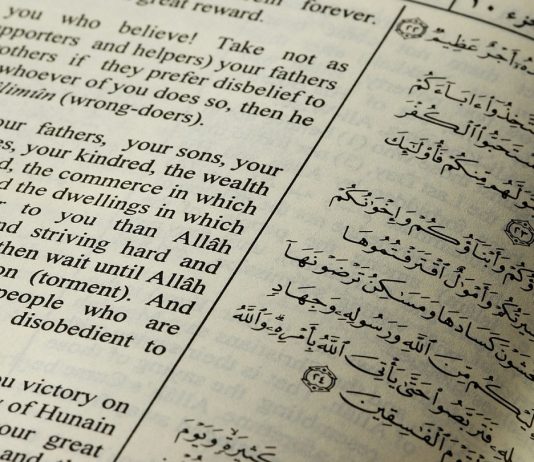 therein forever.
great reward.
you who believe! Take not as
supporters and helpers) your fathers
brothers if they prefer disbelief to
whoever of you does so, then he
limûn (wrong-doers).
our fathers, your sons, your
es, your kindred, the wealth
d, the commerce in which
d the dwellings in which
r to you than Allâh
nd striving hard and
then wait until Allâh
on (torment). And
people who are
disobedient to
u victory on
y of Hunain
our great
and
جزء ١٠
دَهُۥٓ أَجْرٌ عَظِيمٌ ٢٢
تَتَّخِذُوٓا۟ ءَابَآءَكُمْ
سْتَحَبُّوا۟ ٱلْكُفْرَ
تَوَلَّهُم مِّنكُمْ فَأُو۟لَٰٓئِكَ
٢٣
ؤُكُمْ وَأَبْنَآؤُكُمْ وَإِخْوَٰنُكُمْ
يرَتُكُمْ وَأَمْوَٰلٌ ٱقْتَرَفْتُمُوهَا
خْشَوْنَ كَسَادَهَا وَمَسَٰكِنُ تَرْضَوْنَهَآ
إِلَيْكُم مِّنَ ٱللَّهِ وَرَسُولِهِۦ وَجِهَادٍ
لِهِۦ فَتَرَبَّصُوا۟ حَتَّىٰ يَأْتِىَ ٱللَّهُ بِأَمْرِهِۦ وَٱللَّهُ
ٱلْقَوْمَ ٱلْفَٰسِقِينَ ٢٤
كَثِيرَةٍ وَيَوْمَ